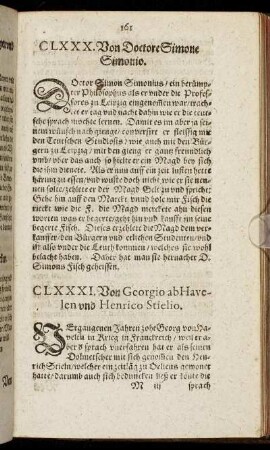 161
CLXXX. Von Doctore Simone
Simonio.
DOctor Simon Simonius / ein berümp-
ter Philosophus als er vnder die Profes-
sores zu Leipzig eingenessen war / trach-
tet er tag vnd nacht dahin wie er die teut-
sche sprach mochte lernen. Damit es im aber ja
seinen wünsch nach gienge / conversirt er fleissig mit
den Teutschen Studiosis / wie auch mit den Bür-
gern zu Leipzig / mit den gieng er gantz freundlich
vmb / vber das auch so hielte er ein Magd bey sich
die ihm dienete. Als er nun auff ein zeit lusten hette
häring zu essen vnd wußte doch nicht wie er sie nen-
nen solte / zehlete er der Magd Gelt zu vnd sprach:
Gehe hin auff den Marckt vnnd hole mir Fisch die
riecht wie die F. die Magd mercket an disen
worten was er begerte / geht hin vnd kaufft im seine
begerte Fisch. Dieses erzehlete die Magd dem ver-
kauffer / den Bürgern vnd etlichen Studenten / vnd
ist also vnder die Leut kommen / welches sie wohl
belacht haben. Daher hat man sie hernacher D.
Simons Fisch geheissen.
CLXXXI. Von Georgio ab Have-
len vnd Henrico Stielio.
IN vergangenen Jahren zohe Georg von Ha-
velen in Krieg in Franckreich / weil er a-
ber d'sprach vnerfahren hat er als seinen
Dolmetscher mit sich genommen den Hen-
rich Stieln / welcher ein zeitlãg zu Orliens gewonet
hatte / darumb auch sich beduncken ließ er könte die
M iij
sprach